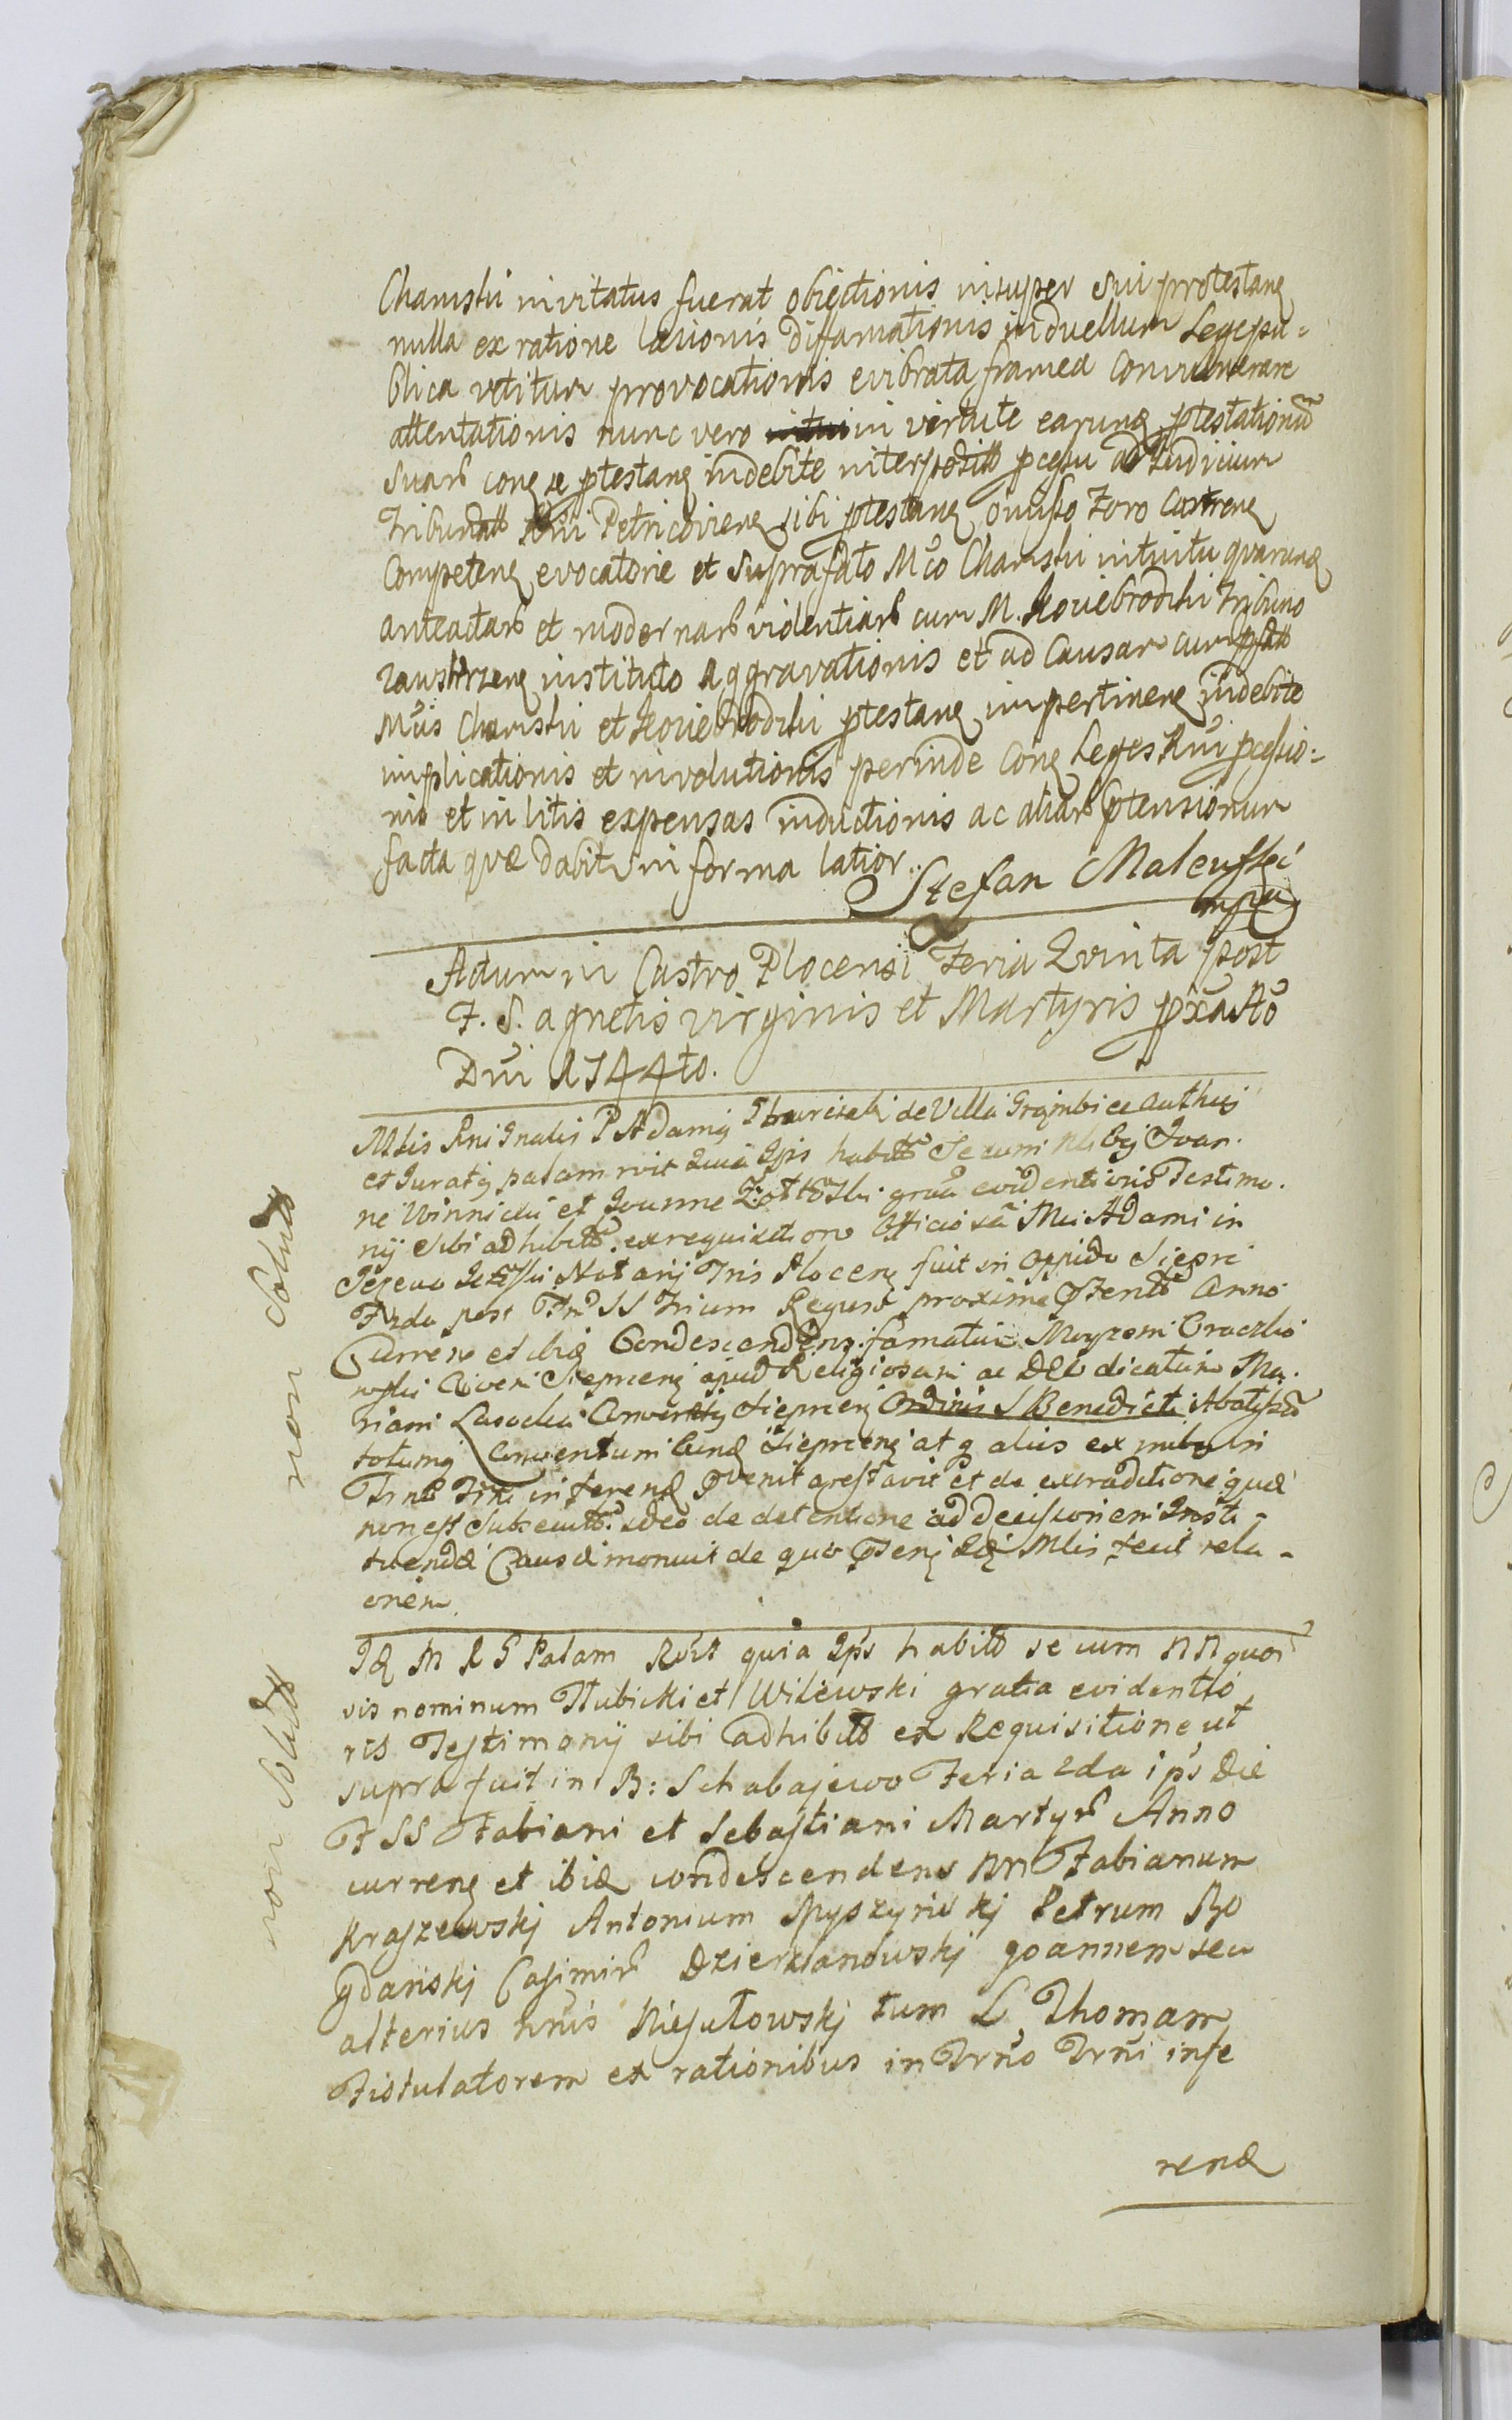 Chamski invitatus fuerat obiectionis insuper sui protestanȩ
nulla ex ratione læsionis difamationis in duellum Lege pu=
blica vetitum provocationis evibrata framea convulnerare
attentationis nunc vero in virtute earunꝗ ptestationũ
suarũ conȩ se ptestanȩ indebite interpositũ pcessu ad Judicium
Tribunalũ Rni Petricovienȩ sibi ptestanȩ omisso Foro Castrenȩ
Competenȩ evocatorie et suprafato Mco Chamski intuitu quarunꝗ
anteactarũ et modernarũ violentiarũ cum M. Koniebrodzki Tribuno
Zawskrzenȩ instituto Aggravationis et ad Causam cum pfatũ
Mcis Chamski et Koniebrodzki ptestanȩ impertinenȩ indebite
implicationis et involutionis perinde Conȩ Leges Rni pcessio=
nis et in litis expensas inductionis ac aliarũ ptensionum
facta quæ dabitur in forma latior.
Stefan Malewski
mpa
Actum in Castro Plocensi Feria Quinta post
F. S. Agnetis virginis et Martyris pxa Ao
Dni 1744to.
Mlis Rni Gnalis P Adamȩ de Villa authus
et Juratȩ palam rvit Quia Ipis habitũ Secum Nlibȩ Joan.
ne Winnicki et Joanne gra evidentioris Testimo.
nij Sibi adhibitũ. ex requisitione Officiosa Mci Adami in
Notarij Tris Plocenȩ fuit in Oppido Sieprc
F 2da post Fm SS Trium Regum proxime pterito Anno
Currenȩ et ibiꝗ Condescendens famatum
Civem Sieprcenȩ apud Religiosam ac Deo dicatam Ma.
riam Lasocka Conventȩ Sieprcenȩ Ordinis S Benedicti Abatissã
totumȩ Conventum eunꝗ Sieprcenȩ atȩ aliis ex
Trno Trni inferenꝗ pvenit arestavit et de extraditione quæ
non est Subsecuta ideo de detentione ad decisionem Insti-
tuendæ Causæ monuit de quo pȩenȩ Idȩ Mlis fecit rela-
onem.
Idꝗ M R G Palam Rvit quia Ipẽ habitũ secum NN quor
vis nominum Nubicki et Wilewski gratia evidentio
ris Testimonij sibi adhibitũ ex Requisitione ut
supra fuit in B: Schabajewo Feria 2da ipẽ Die
F SS Fabiani et Sebastiani Martyrũ Anno
currenȩ et ibiꝗ condescendens NN Fabianum
Kraszewskj Antonium Spyszyriskj Petrum Bo
gdańskj Casimirũ Dzierzanowskj Joannem seu
alterius nnis Niesułowskj tum L Thomam
Fistulatorem ex rationibus in Trno Trni infe
renꝗ
non Solutũ
non Solutũ